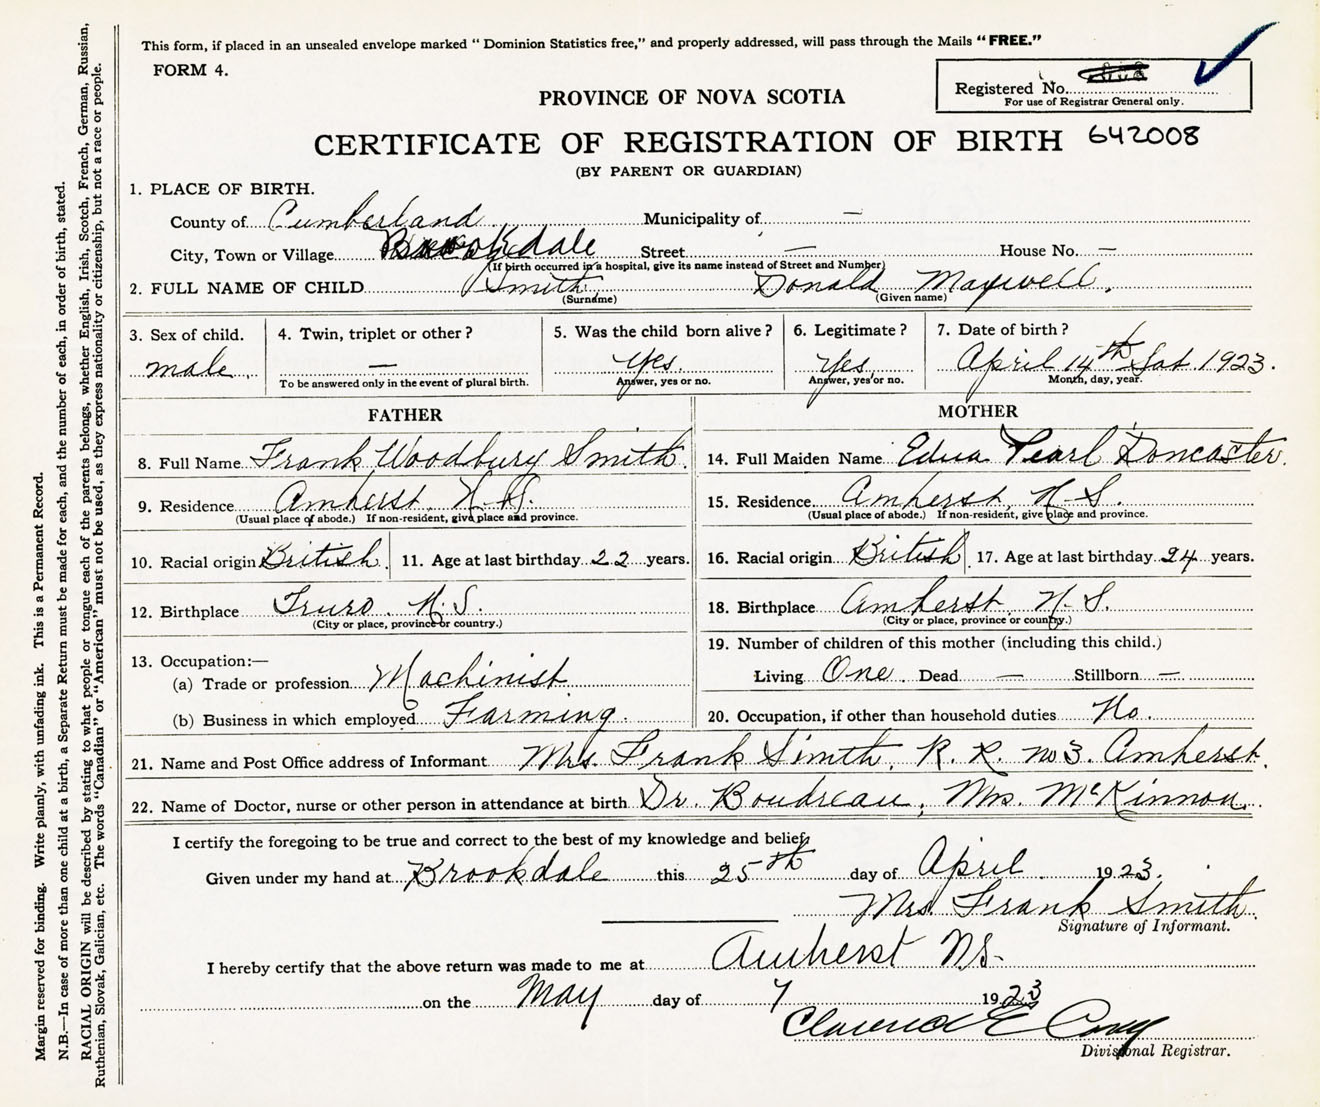 This form, if placed in an unsealed envelope marked " Dominion Statistics free," and properly addressed, will pass through the Mails "FREE."
FORM 4.
Registered No.
For use of Registrar General only.
PROVINCE OF NOVA SCOTIA
CERTIFICATE OF REGISTRATION OF BIRTH 642008
(BY PARENT OR GUARDIAN)
1. PLACE OF BIRTH.
County of Cumberland Municipality of —
City, Town or Village Brookdale Street — House No. —
(If birth occurred in a hospital, give its name instead of Street and Number)
2. FULL NAME OF CHILD Smith Donald Maxwell.
(Surname) (Given name)
3. Sex of child. 4. Twin, triplet or other? 5. Was the child born alive? 6. Legitimate? 7. Date of birth?
male. — Yes. Yes, April 14th Sat. 1923.
To be answered only in the event of plural birth. Answer, yes or no. Answer, yes or no. Month, day, year.
FATHER
8. Full Name Frank Woodbury Smith.
9. Residence Amherst, N.S.
(Usual place of abode.) If non-resident, give place and province.
10. Racial origin British. 11. Age at last birthday 22 years.
12. Birthplace Truro. N.S.
(City or place, province or country.)
13. Occupation:—
(a) Trade or profession Machinist
(b) Business in which employed Farming.
MOTHER
14. Full Maiden Name Edna Pearl Doncaster.
15. Residence Amherst, N.S.
(Usual place of abode.) If non-resident, give place and province.
16. Racial origin British. 17. Age at last birthday 24 years.
18. Birthplace Amherst N.S.
(City or place, province or country.)
19. Number of children of this mother (including this child.)
Living One. Dead — Stillborn —
20. Occupation, if other than household duties No.
21. Name and Post Office address of Informant Mrs. Frank Smith, R. R. no 3. Amherst.
22. Name of Doctor, nurse or other person in attendance at birth Dr. Boudreau, Mrs. McKinnon.
I certify the foregoing to be true and correct to the best of my knowledge and belief,
Given under my hand at Brookdale this 25th day of April 1923.
Mrs. Frank Smith.
Signature of Informant.
I hereby certify that the above return was made to me at Amherst NS-
on the May day of 7 1923
Clarence E
Divisional Registrar.
Margin reserved for binding. Write plainly, with unfading ink. This is a Permanent Record.
N.B.—In case of more than one child at a birth, a Separate Return must be made for each, and the number of each, in order of birth, stated.
RACIAL ORIGIN will be described by stating to what people or tongue each of the parents belongs, whether English, Irish, Scotch, French, German, Russian,
Ruthenian, Slovak, Galician, etc. The words "Canadian" or "American" must not be used, as they express nationality or citizenship, but not a race or people.